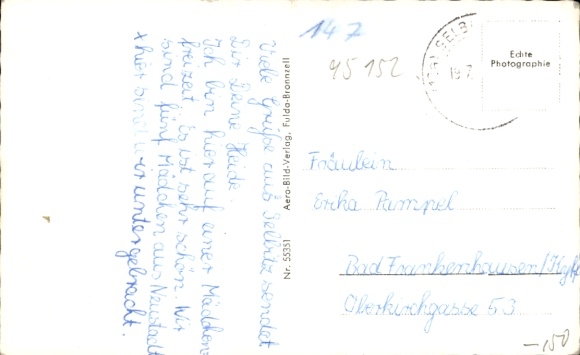 Viele Grüße aus Selbitz sendet
Dir Deine Heide.
Ich bin hier auf einer Mädchen-
freizeit. Es ist sehr schön. Wir
sind fünf Mädchen aus Neustadt
x hier sind wir untergebracht.
Nr. 55351 Aero-Bild-Verlag, Fulda-Bronnzell
147
95152
SELB
19.7.
Echte
Photographie
Fräulein
Erika Pampel
Bad Frankenhausen/Kyffh
Oberkirchgasse 53
-150